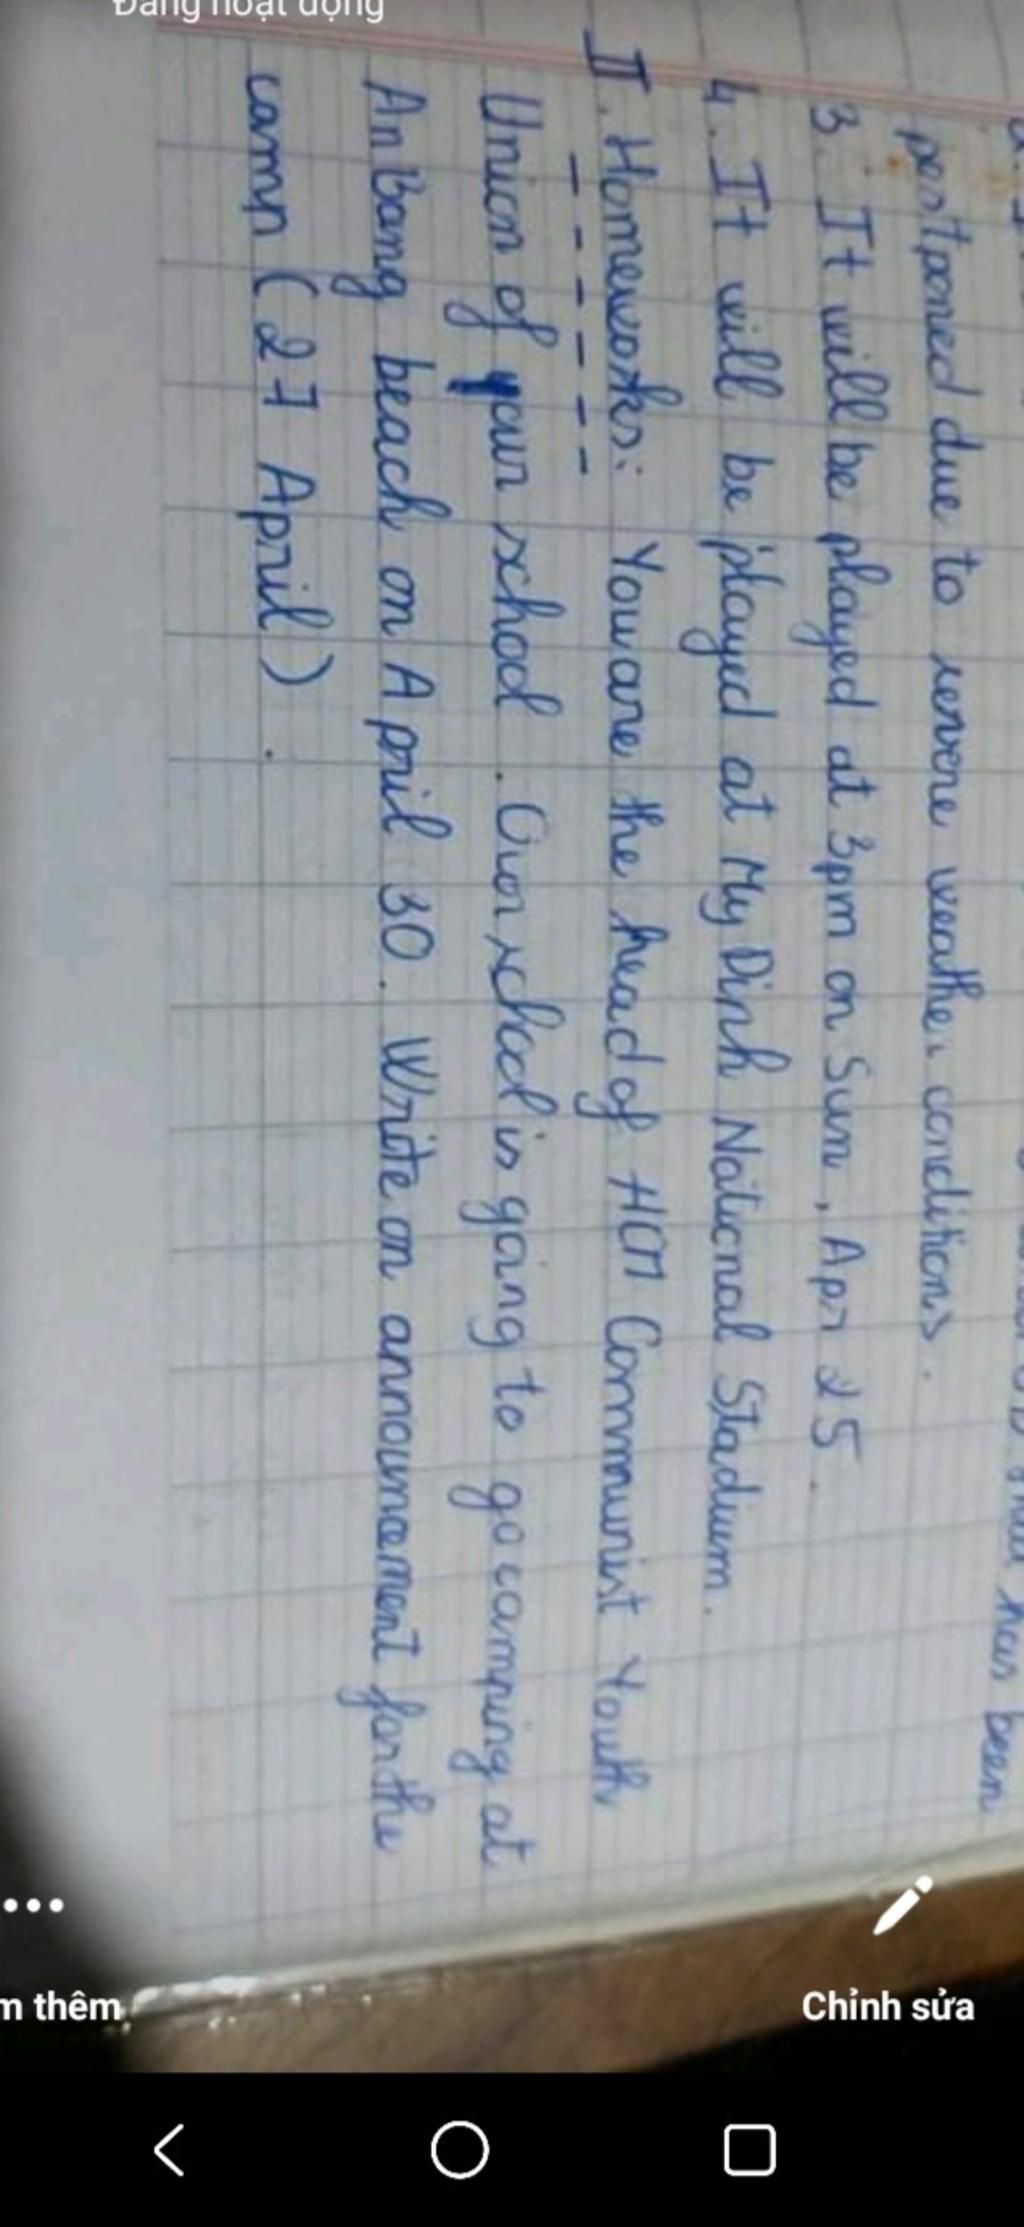 Đang hoạt động
has been
postponed due to severe weather conditions.
3. It will be played at 3pm on Sun, Apr 25.
4. It will be played at My Dinh National Stadium.
II. Homeworks: You are the head of HCM Communist Youth
Union of your school. Our school is going to go camping at
An Bang beach on April 30. Write an announcement for the
camp (27 April).
m thêm
Chỉnh sửa